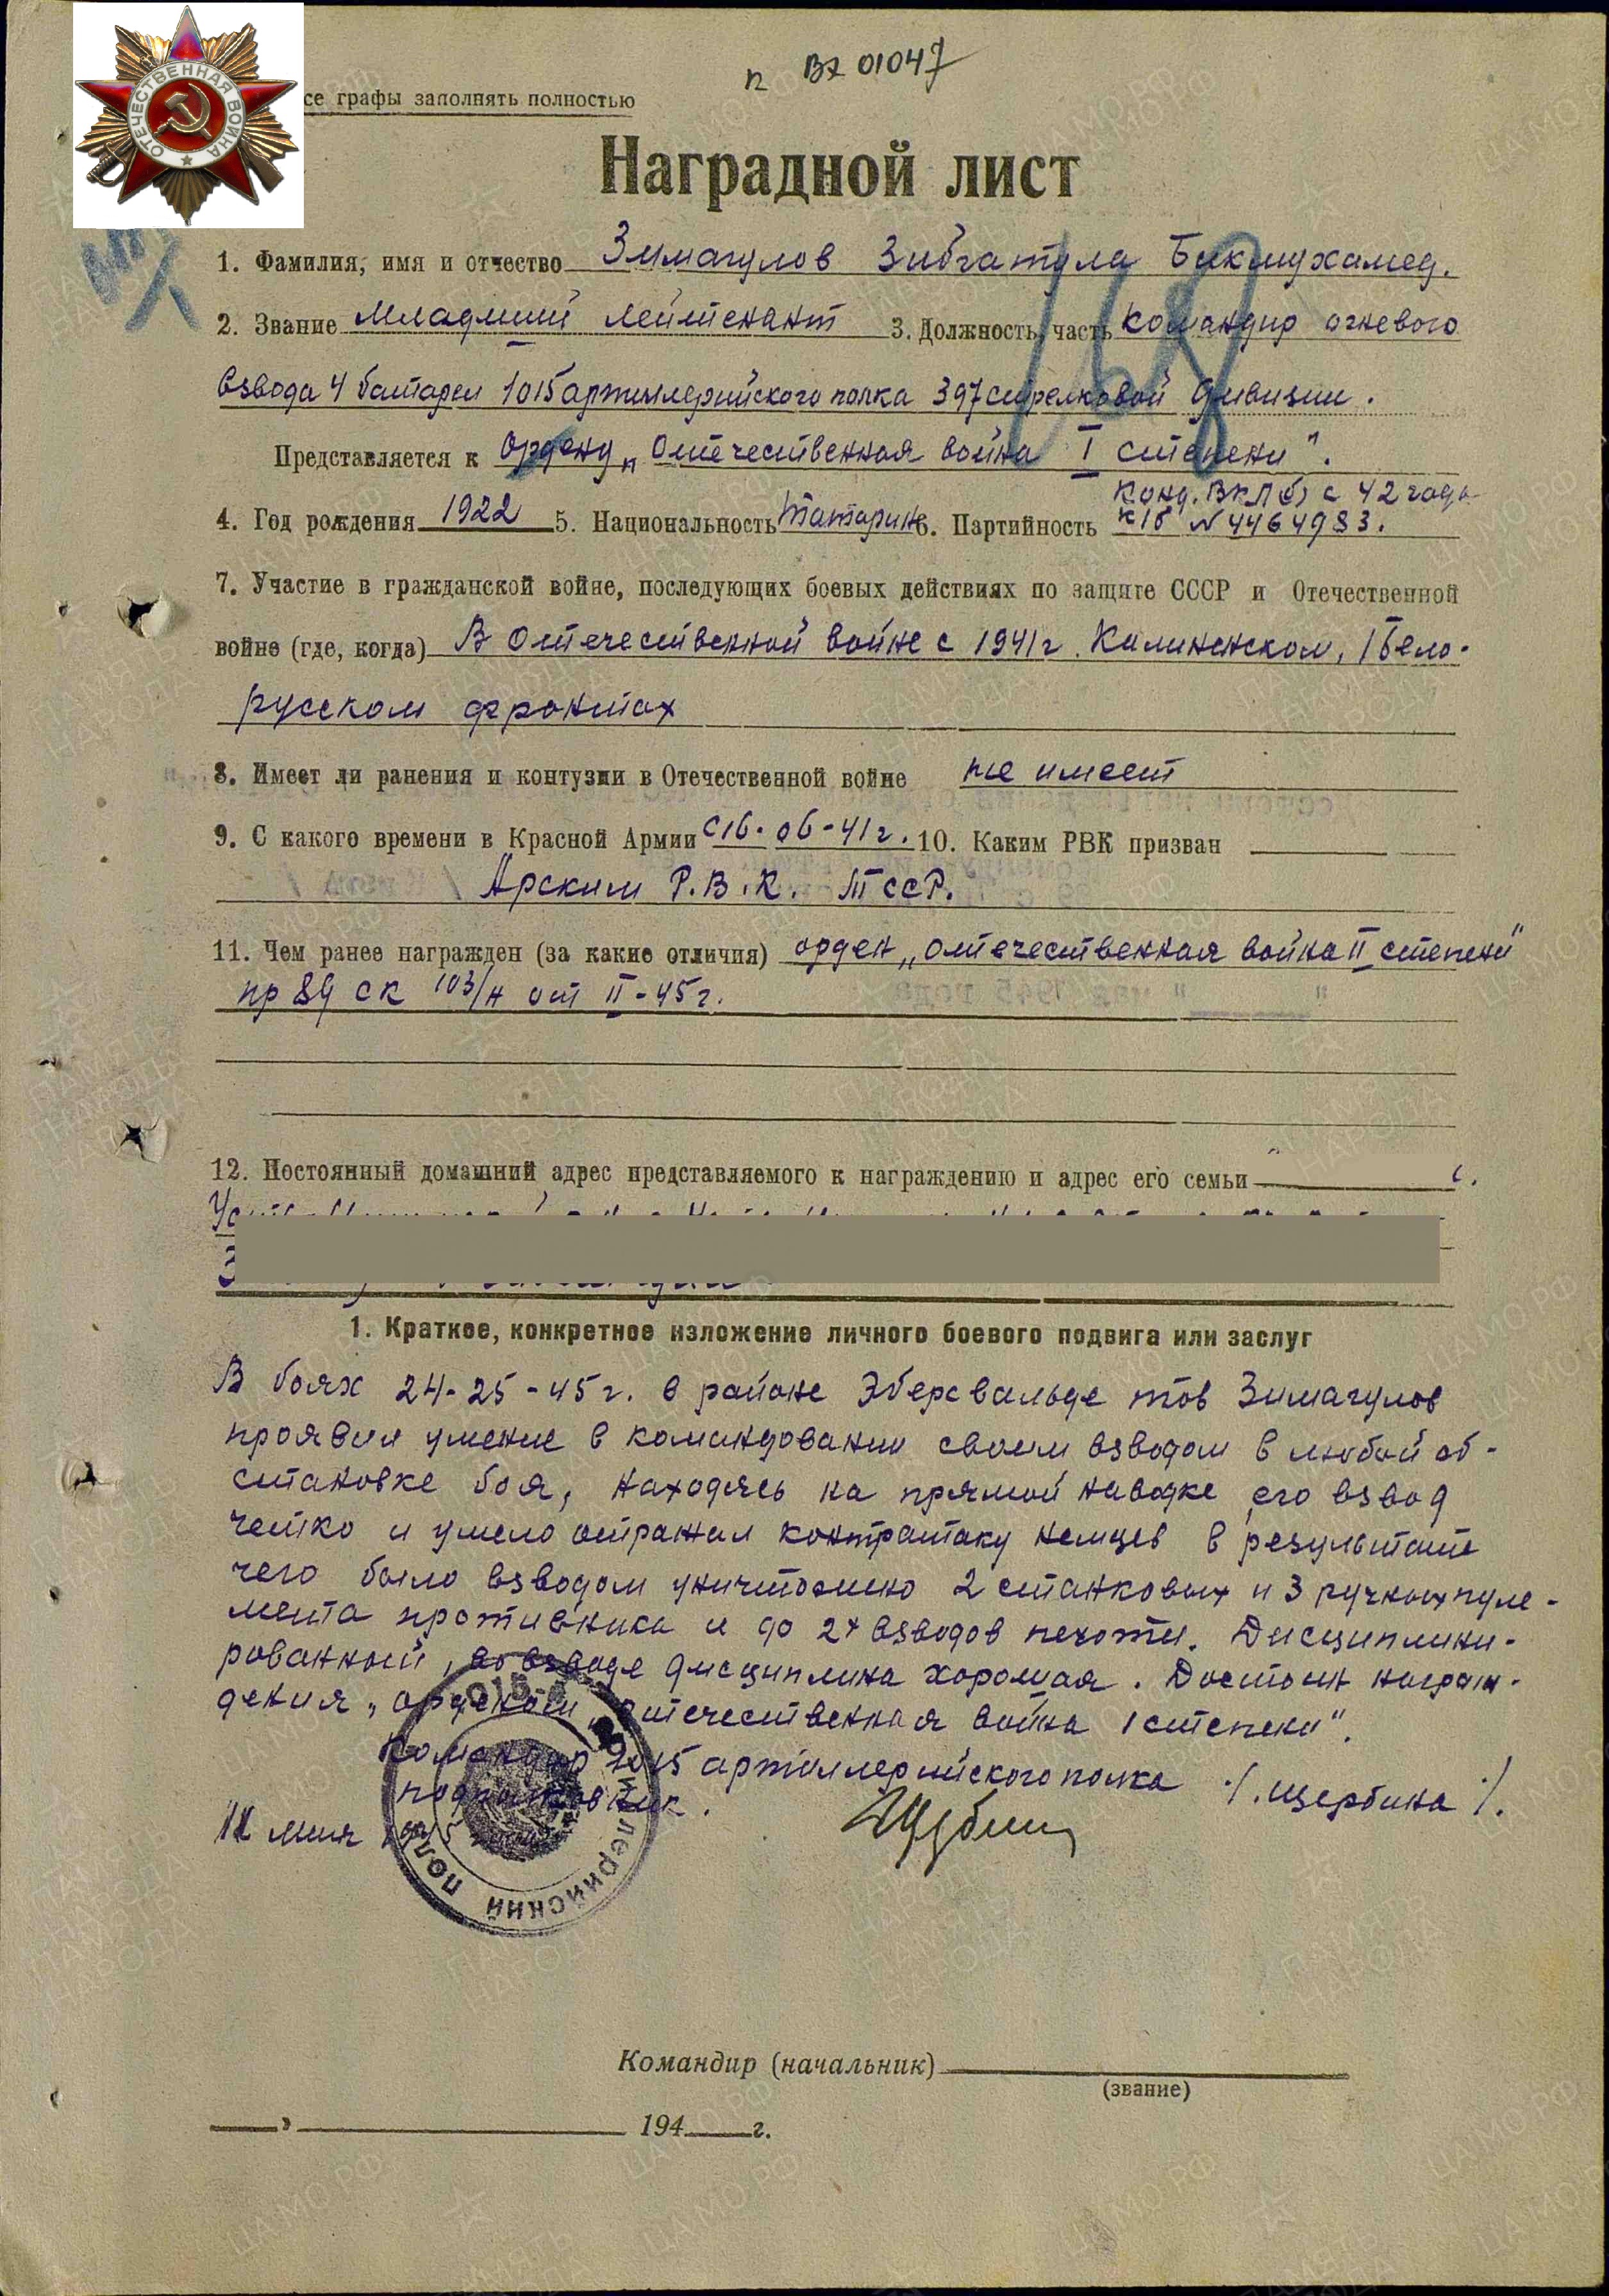 п Вх 01047
се графы заполнять полностью
ОТЕЧЕСТВЕННАЯ ВОЙНА
Наградной лист
1. Фамилия, имя и отчество Зимагулов Зибгатула Бикмухамед.
2. Звание Младший лейтенант 3. Должность, часть командир огневого
взвода 4 батареи 1015 артиллерийского полка 397 стрелковой дивизии.
Представляется к ордену „Отечественная война I степени".
Конд. ВКП(б) с 42 года
4. Год рождения 1922 5. Национальность Татарин 6. Партийность к/б № 4464983.
7. Участие в гражданской войне, последующих боевых действиях по защите СССР и Отечественной
войне (где, когда) В Отечественной войне с 1941г. Калиненском, 1 Бело-
русском фронтах
8. Имеет ли ранения и контузии в Отечественной войне не имеет
9. С какого времени в Красной Армии С 16-06-41г. 10. Каким РВК призван
Арским Р.В.К. ТССР.
11. Чем ранее награжден (за какие отличия) орден „Отечественная война II степени"
пр 89 СК 103/н от II-45г.
12. Постоянный домашний адрес представляемого к награждению и адрес его семьи
1. Краткое, конкретное изложение личного боевого подвига или заслуг
В боях 24-25-45г. в районе Эберсвальде тов Зимагулов
проявил умение в командовании своим взводом в любой об-
становке боя, находясь на прямой наводке его взвод
четко и умело отражал контратаку немцев в результате
чего было взводом уничтожено 2 станковых и 3 ручных пуле-
мента противника и до 2х взводов пехоты. Дисциплини-
рованный, во взводе дисциплина хорошая. Достоин награж-
дения „орденом „Отечественная война 1 степени".
Командир 1015 артиллерийского полка /. Щербина /.
подполковник.
11 мая 1945
1015-й артиллерийский полк
Командир (начальник)
(звание)
194 г.